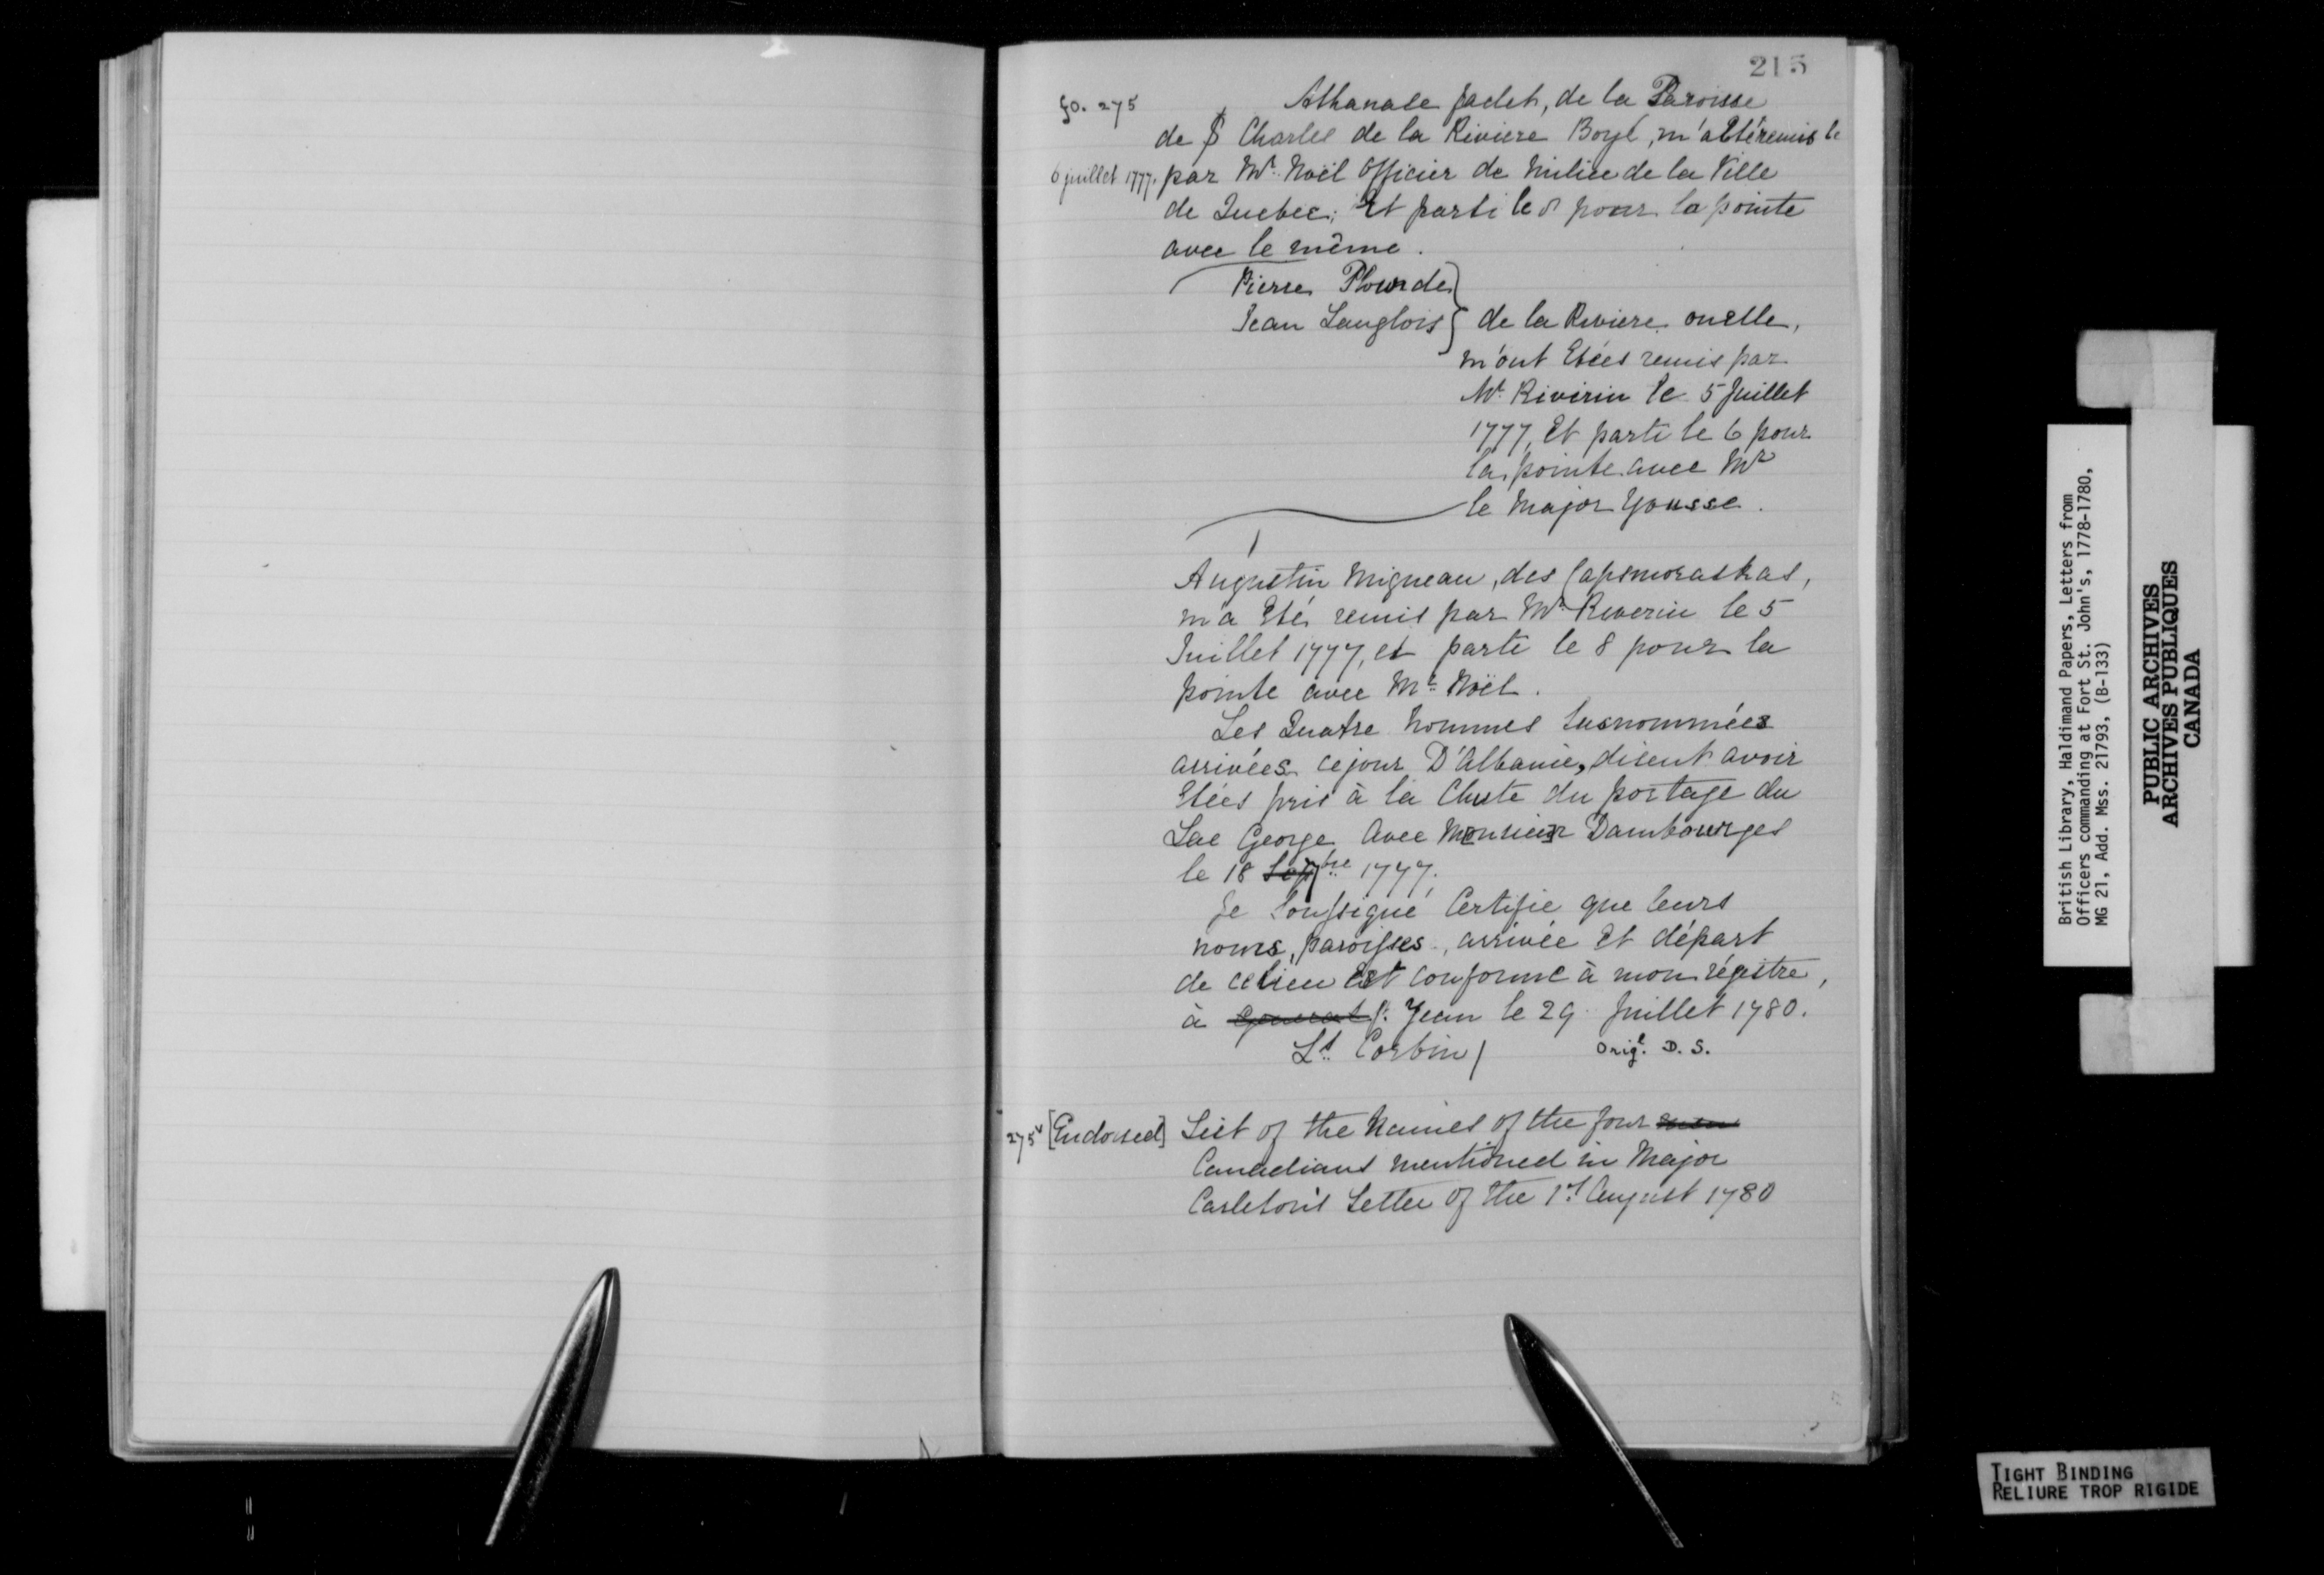 215
fo. 275
Athanase Jadet, de la Paroisse
de St Charles de la Riviere Boyé, m'a Eté remis le
6 juillet 1777. par Mr. Noël Officier de Milice de la Ville
de Quebec; Et parti le 8 pour la pointe
avec le même.
Pierre Plourde
Jean Langlois } de la Riviere ouelle,
m'ont Etées remis par
Mr. Rivirin le 5 Juillet
1777, Et parti le 6 pour
la pointe avec Mr
le Major Yousse.
Augustin Migneau, des Capsmoraskas,
m'a Eté remis par Mr. Reverin le 5
Juillet 1777, et parti le 8 pour la
pointe avec Mr. Noël.
Les Quatre hommes susnommées
arrivées ce jour D'Albanie, disent avoir
Etées pris à la Chute du portage du
Lac George avec M[onsieu]r Dambourges
le 18 7bre 1777.
Je Soussigné Certifie que leurs
noms, paroisses, arrivée Et départ
de ce lieu Est conforme à mon régistre,
à St. Jean le 29 Juillet 1780.
Lt. Corbin/
Origl. D. S.
275v [Endorsed] List of the Names of the four men
Canadians mentioned in Major
Carleton's Letter of the 1st August 1780
British Library, Haldimand Papers, Letters from
Officers commanding at Fort St. John's, 1778-1780,
MG 21, Add. Mss. 21793, (B-133)
PUBLIC ARCHIVES
ARCHIVES PUBLIQUES
CANADA
TIGHT BINDING
RELIURE TROP RIGIDE